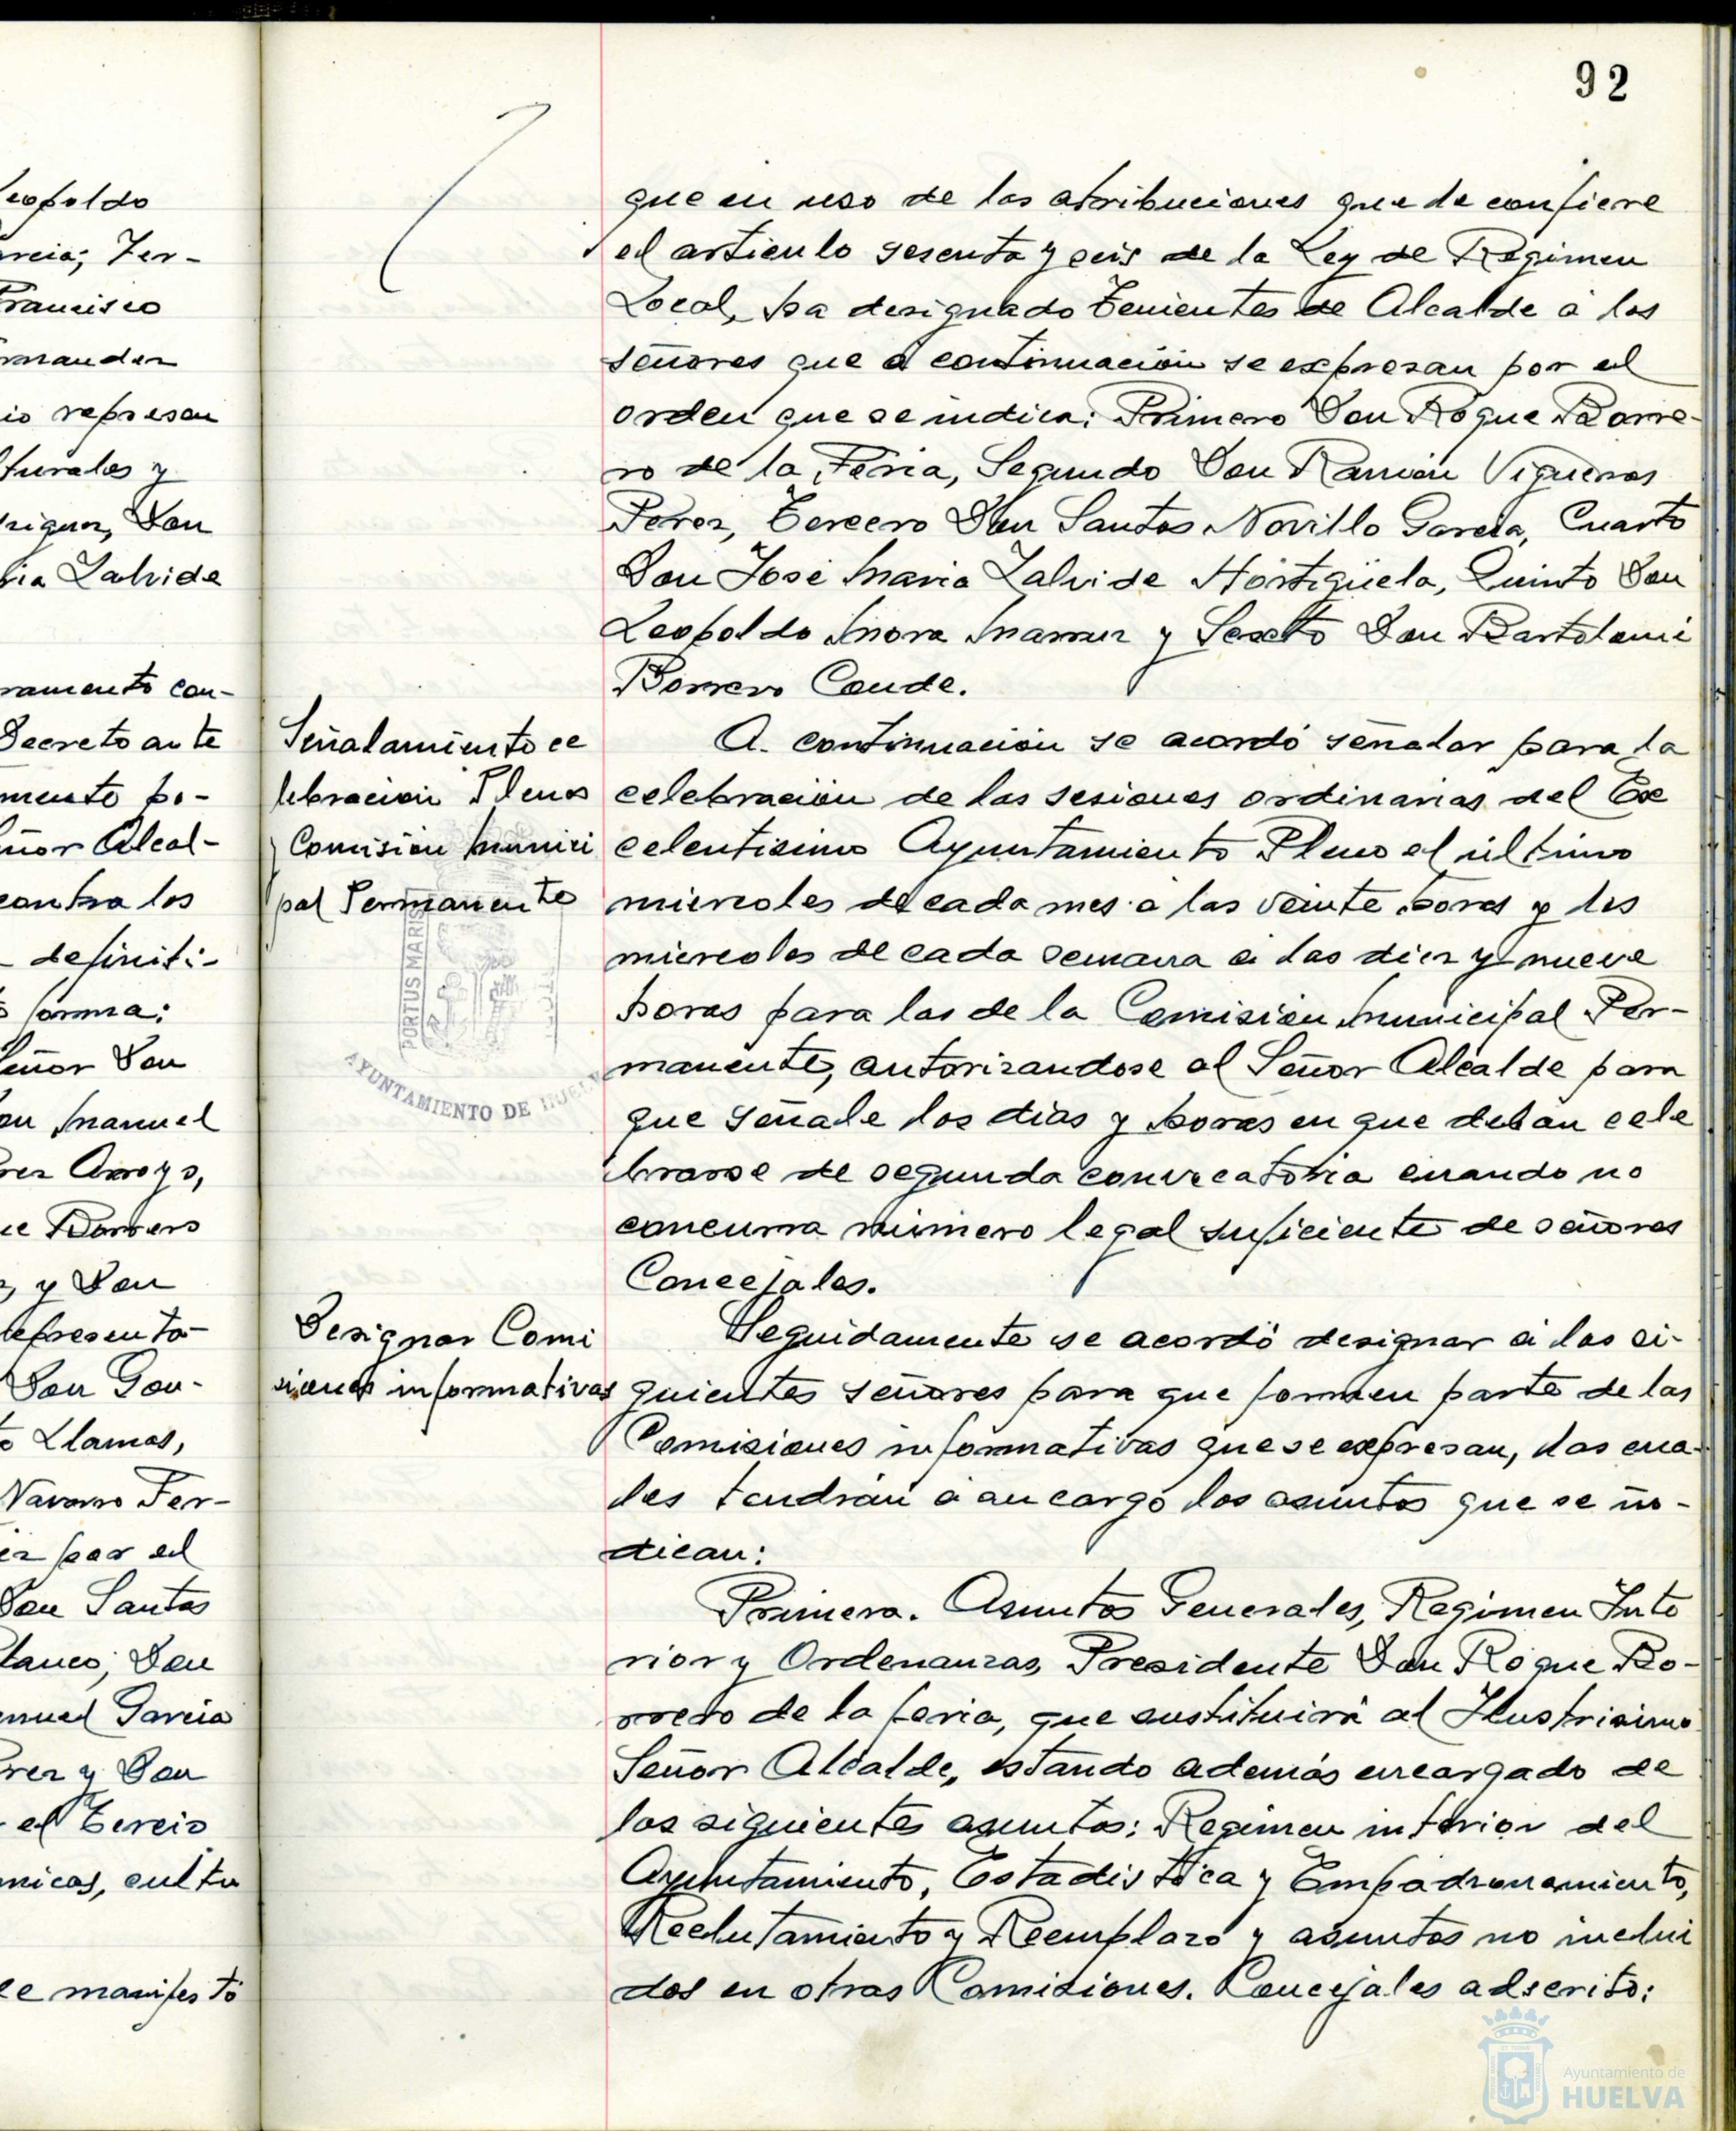 eopoldo
arcia; Fer-
Francisco
rnandez
io represen
lturales y
driguez, Don
ria Zalvide
ramento con-
Decreto ante
mento po-
eñor Alcal-
contra los
definiti-
forma:
Señor Don
on Manuel
rez Arroyo,
ue Borrero
z, y Don
representa-
Don Gon-
to Llamas,
Navarro Fer-
ez por el
Don Santos
Blanco, Don
anuel Garcia
rez y Don
el Tercio
micas, cultu
ce manifestó
92
que en uso de las atribuciones que le confiere
el articulo sesenta y seis de la Ley de Regimen
Local, ha designado Tenientes de Alcalde a los
señores que a continuación se expresan por el
orden que se indica: Primero Don Roque Borre-
ro de la Feria, Segundo Don Ramón Vigueras
Perez, Tercero Don Santos Novillo Garcia, Cuarto
Don José Maria Zalvide Hortigüela, Quinto Don
Leopoldo Mora Mamuz y Sexto Don Bartolomé
Borrero Conde.
Señalamiento ce
lebración Pleno
Comisión Munici
pal Permanente
PORTUS MARIS
AYUNTAMIENTO DE HUELVA
A continuación se acordó señalar para la
celebración de las sesiones ordinarias del Ex
celentisimo Ayuntamiento Pleno el último
miercoles de cada mes a las veinte horas y los
miercoles de cada semana a las diez y nueve
horas para las de la Comisión Municipal Per-
manente, autorizandose al Señor Alcalde para
que señale los dias y horas en que deban cele
brarse de segunda convocatoria cuando no
concurra número legal suficiente de señores
Concejales.
Designar Comi
siones informativas
Seguidamente se acordó designar a los si-
guientes señores para que formen parte de las
Comisiones informativas que se expresan, las cua-
les tendrán a su cargo los asuntos que se in-
dican:
Primera. Asuntos Generales, Regimen Inte
rior y Ordenanzas, Presidente Don Roque Bo-
rrero de la feria, que sustituirá al Ilustrisimo
Señor Alcalde, estando además encargado de
los siguientes asuntos: Regimen interior del
Ayuntamiento, Estadistica y Empadronamiento,
Reclutamiento y Reemplazo y asuntos no inclui
dos en otras Comisiones. Concejales adscrito:
Ayuntamiento de
HUELVA